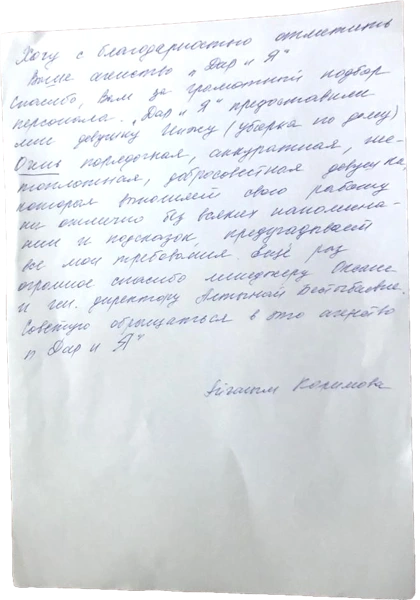 Хочу с благодарностью отметить
Ваше агенство „Дар и Я"
Спасибо, Вам за грамотный подбор
персонала. „Дар и Я" предоставили
мне девушку (уборка по дому)
Очень порядочная, аккуратная, не-
добросовестная девушка,
которая выполняет свою работу
на отлично без всяких напомина-
ний и подсказок, предугадывает
все мои требования. Ещё раз
огромное спасибо менеджеру Оксане
и ген. директору
Советую обращаться в это агенство
„Дар и Я"
Каримова